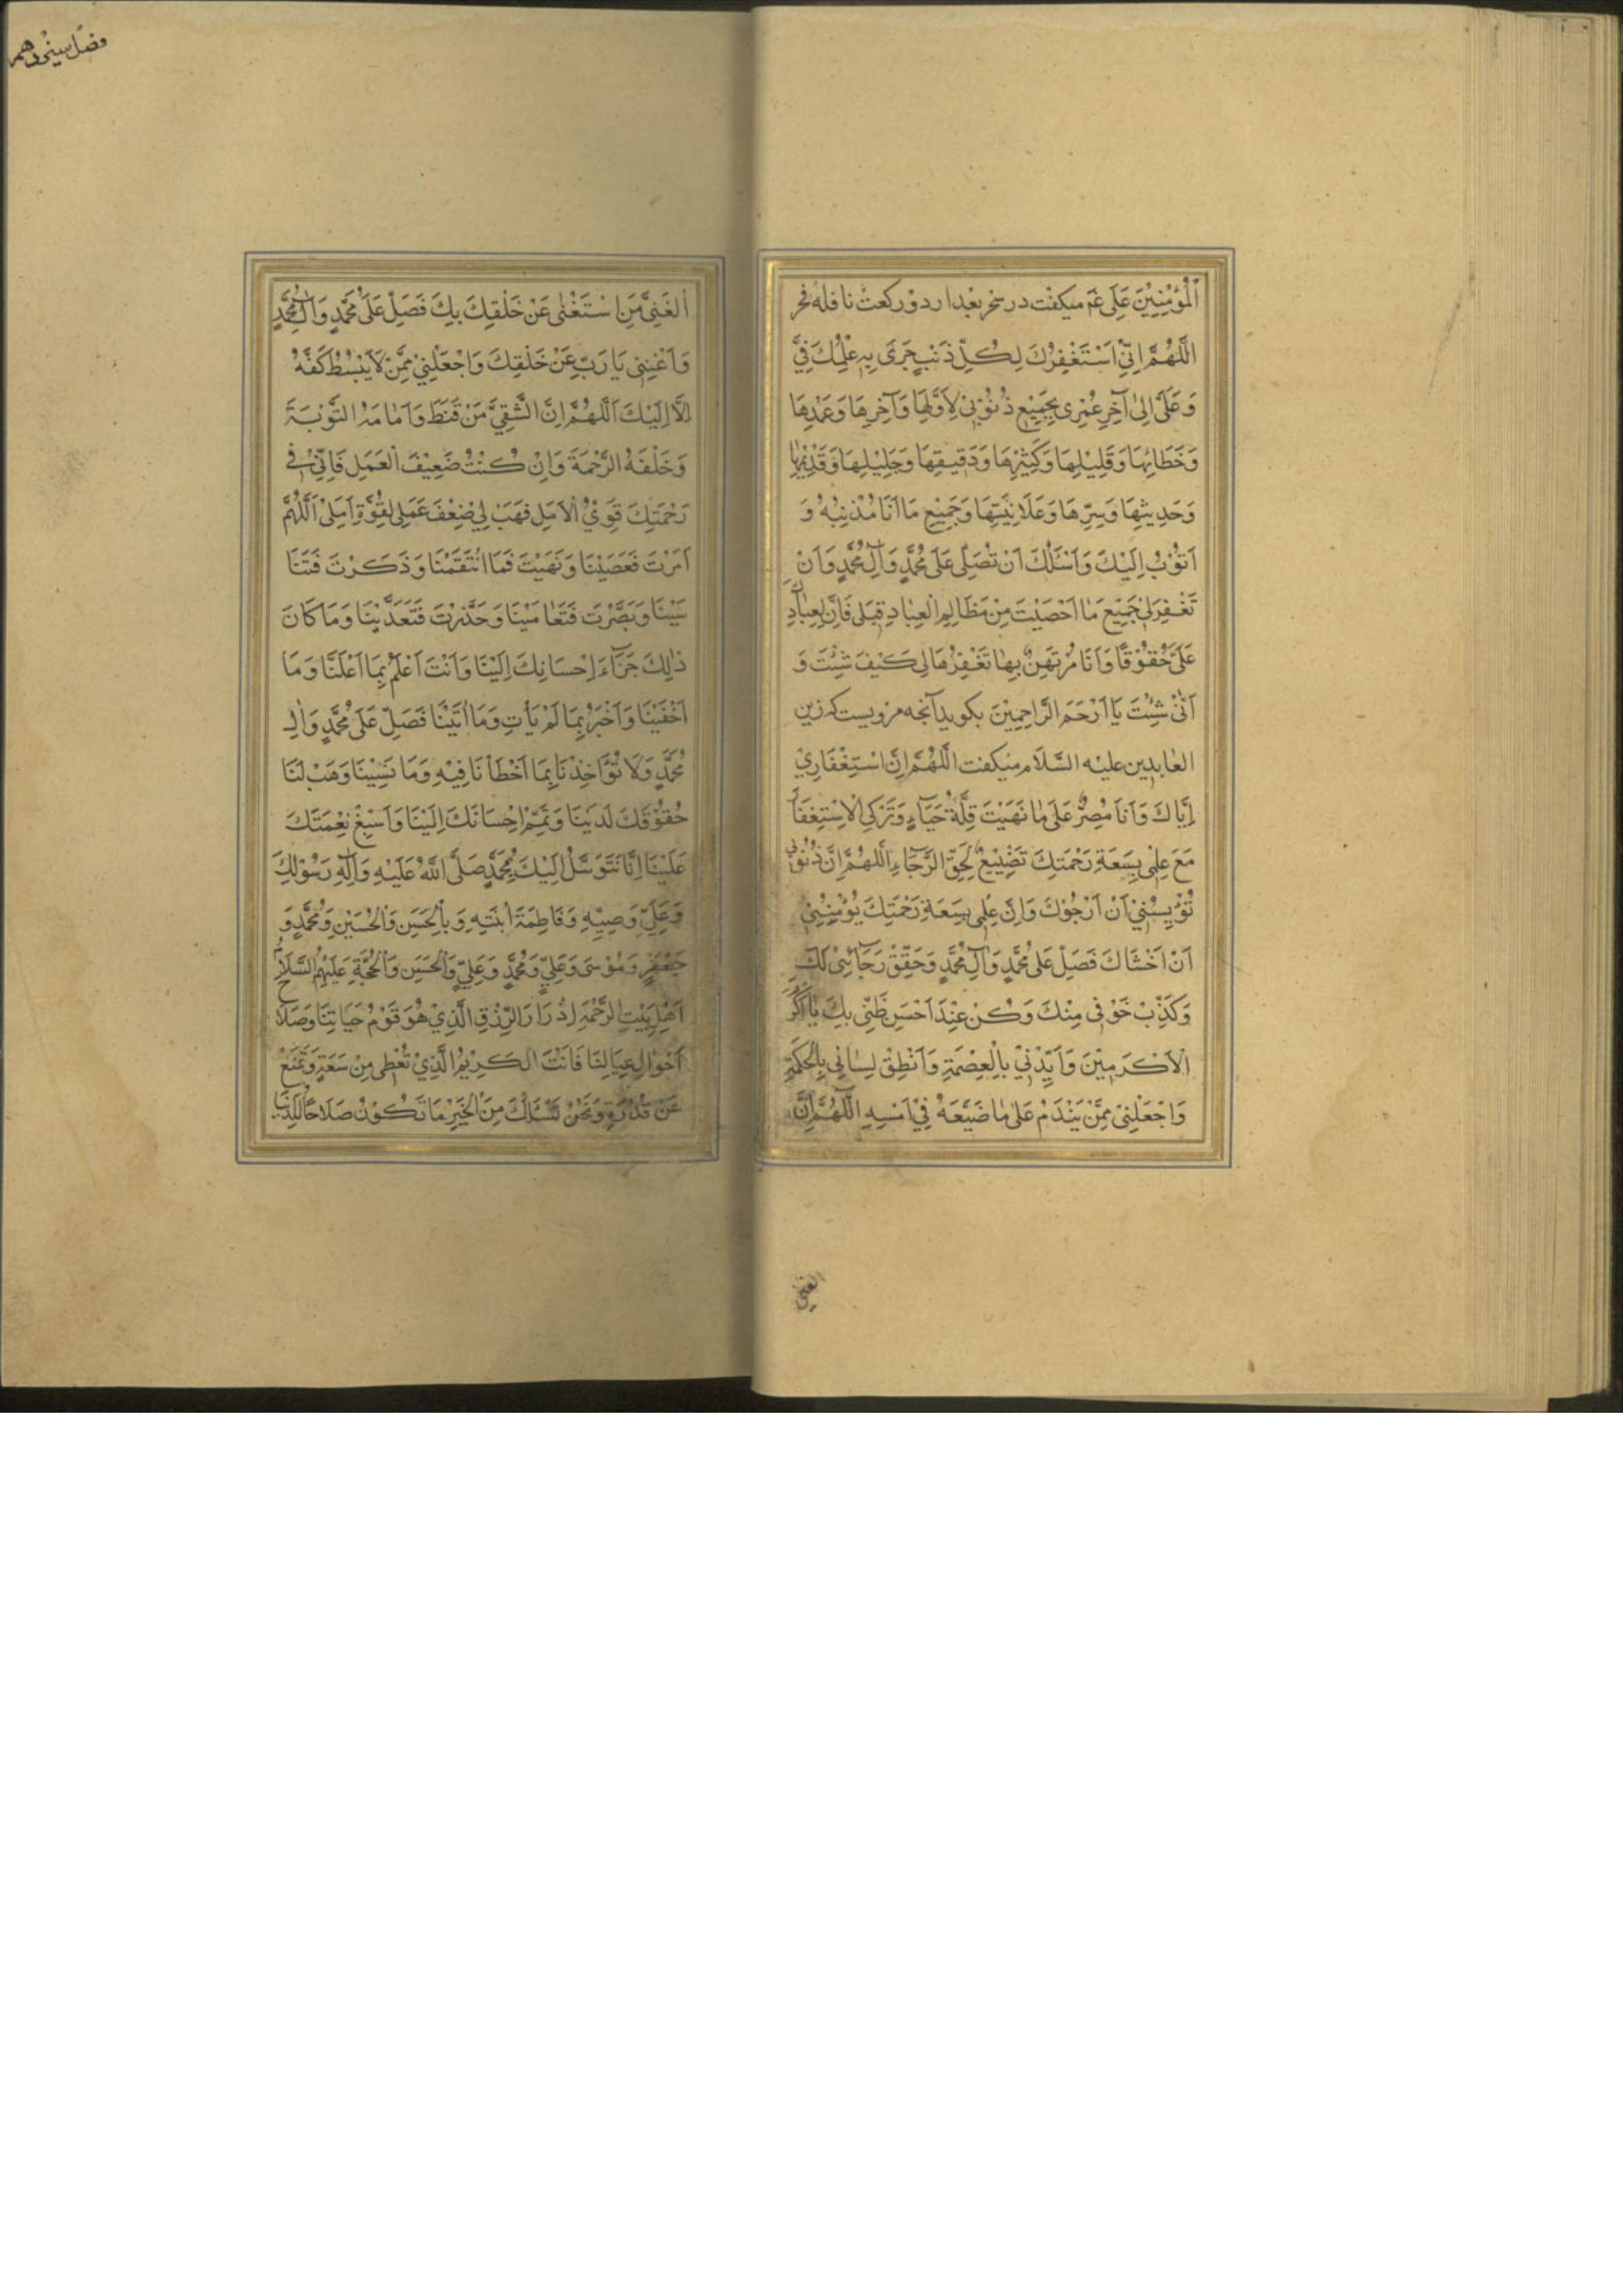 اَلْمُؤْمِنِيْنَ عَلِى عَم ميكفت در سحر بعد از دو ركعت نافله فجر
اَللّٰهُمَّ اِنِّى اَسْتَغْفِرُكَ لِكُلِّ ذَنْبٍ جَرَىَ بِهِ عِلْمُكَ فِىَّ
وَعَلَىَّ اِلىٰ آخِرِ عُمْرِى بِجَمِيْعِ ذُنُوْبِىْ لِاَوَّلِهَا وَآخِرِهَا وَعَمْدِهَا
وَخَطَائِهَا وَقَلِيْلِهَا وَكَثِيْرِهَا وَدَقِيْقِهَا وَجَلِيْلِهَا وَقَدِيْمِهَا
وَحَدِيثِهَا وَسِرِّهَا وَعَلَانِيَتِهَا وَجَمِيْعِ مَا اَنَا مُذْنِبُهُ وَ
اَتُوْبُ اِلَيْكَ وَاَسْئَلُكَ اَنْ تُصَلِّىَ عَلىٰ مُحَمَّدٍ وَآلِ مُحَمَّدٍ وَاَنْ
تَغْفِرَلِىْ جَمِيْعَ مٰا اَحْصَيْتَ مِنْ مَظَالِمِ الْعِبٰادِ قِبَلِى فَاِنَّ لِعِبٰادِكَ
عَلَىَّ حُقُوْقًا وَاَنَا مُرْتَهَنٌ بِهٰا تَغْفِرُهَا لِى كَيْفَ شِئْتَ وَ
اَنّٰى شِئْتَ يَا اَرْحَمَ الرَّاحِمِيْنَ بكويد آنجه مرويست كه زين
العٰابدين عليه السَّلٰام ميكفت اَللّٰهُمَّ اِنَّ اسْتِغْفَارِيْ
اِيَّاكَ وَاَنَا مُصِرٌّ عَلىٰ مٰا نَهَيْتَ قِلَّةُ حَيَآءٍ وَتَرْكِى الْاِسْتِغْفَارَ
مَعَ عِلْمِى بِسَعَةِ رَحْمَتِكَ تَضْيِيْعٌ لِحَقِّ الرَّجَآءِ اَللّٰهُمَّ اِنَّ ذُنُوْبِى
تُؤْيِسُنِيْ اَنْ اَرْجُوْكَ وَاِنَّ عِلْمِى بِسَعَةِ رَحْمَتِكَ يُؤْمِنُنِىْ
اَنْ اَخْشَاكَ فَصَلِّ عَلىٰ مُحَمَّدٍ وَآلِ مُحَمَّدٍ وَحَقِّقْ رَجَآئِىْ لَكَ
وَكَذِّبْ خَوْفِى مِنْكَ وَكُنْ عِنْدَ اَحْسَنِ ظَنِّى بِكَ يٰا اَكْرَمَ
الْاَكْرَمِيْنَ وَاَيِّدْنِيْ بِالْعِصْمَةِ وَاَنْطِقْ لِسٰانِى بِالْحِكْمَةِ
وَاجْعَلْنِىْ مِمَّنْ يَنْدَمُ عَلىٰ مٰا ضَيَّعَهُ فِيْ اَمْسِهِ اَللّٰهُمَّ اِنَّ
الغنى
اَلْغَنِىَّ مَنِ اسْتَغْنٰى عَنْ خَلْقِكَ بِكَ فَصَلِّ عَلىٰ مُحَمَّدٍ وَآلِ مُحَمَّدٍ
وَاَغْنِنِى يَا رَبِّ عَنْ خَلْقِكَ وَاجْعَلْنِيْ مِمَّنْ لَايَبْسُطُ كَفَّهُ
اِلَّا اِلَيْكَ اَللّٰهُمَّ اِنَّ الشَّقِيَّ مَنْ قَنَطَ وَاَمَامَهُ التَّوْبَةَ
وَخَلْفَهُ الرَّحْمَةَ وَاِنْ كُنْتُ ضَعِيْفَ الْعَمَلِ فَاِنِّىْ فِى
رَحْمَتِكَ قَوِىُّ الْاَمَلِ فَهَبْ لِيْ ضِعْفَ عَمَلِى لِقُوَّةِ اَمَلِىْ اَللّٰهُمَّ
اَمَرْتَ فَعَصَيْنَا وَنَهَيْتَ فَمَا انْتَقَمْنَا وَذَكَرْتَ فَتَنَا
سَيْنَا وَبَصَّرْتَ فَتَعٰامَيْنَا وَحَذَّرْتَ فَتَعَدَّيْنَا وَمَا كَانَ
ذٰلِكَ جَزَآءَ اِحْسَانِكَ اِلَيْنَا وَاَنْتَ اَعْلَمُ بِمَا اَعْلَنَّا وَمَا
اَخْفَيْنَا وَاَخْبَرُ بِمَا لَمْ يَأتِ وَمَا اٰتَيْنَا فَصَلِّ عَلىٰ مُحَمَّدٍ وَاٰلِ
مُحَمَّدٍ وَلَا تُؤَاخِذْنَا بِمَا اَخْطَأنَا فِيْهِ وَمَا نَسِيْنَا وَهَبْ لَنَا
حُقُوْقَكَ لَدَيْنَا وَتَمِّمْ اِحْسَانَكَ اِلَيْنَا وَاَسْبِغْ نِعْمَتَكَ
عَلَيْنَا اِنَّا نَتَوَسَّلُ اِلَيْكَ بِمُحَمَّدٍ صَلَّى اللهُ عَلَيْهِ وَآلِهِ رَسُوْلِكَ
وَعَلِىٍّ وَصِيِّهِ وَفَاطِمَةَ ابْنَتِهِ وَبِالْحَسَنِ وَالْحُسَيْنِ وَمُحَمَّدٍ وَ
جَعْفَرٍ وَمُوْسىٰ وَعَلِيٍّ وَمُحَمَّدٍ وَعَلِيٍّ وَالْحَسَنِ وَالْحُجَّةِ عَلَيْهِمُ السَّلَامُ
اَهْلِ بَيْتِ الرَّحْمَةِ اِدْرَارَ الرِّزْقِ الَّذِيْ هُوَ قَوٰمُ حَيَاتِنَا وَصَلَاحُ
اَحْوَالِ عِيَالِنَا فَاَنْتَ الْكَرِيْمُ الَّذِيْ تُعْطِى مِنْ سَعَةٍ وَتَمْنَعُ
عَنْ قُدْرَةٍ وَنَحْنُ نَسْئَلُكَ مِنَ الْخَيْرِ مَا تَكُوْنُ صَلَاحًا لِلدُّنْيَا